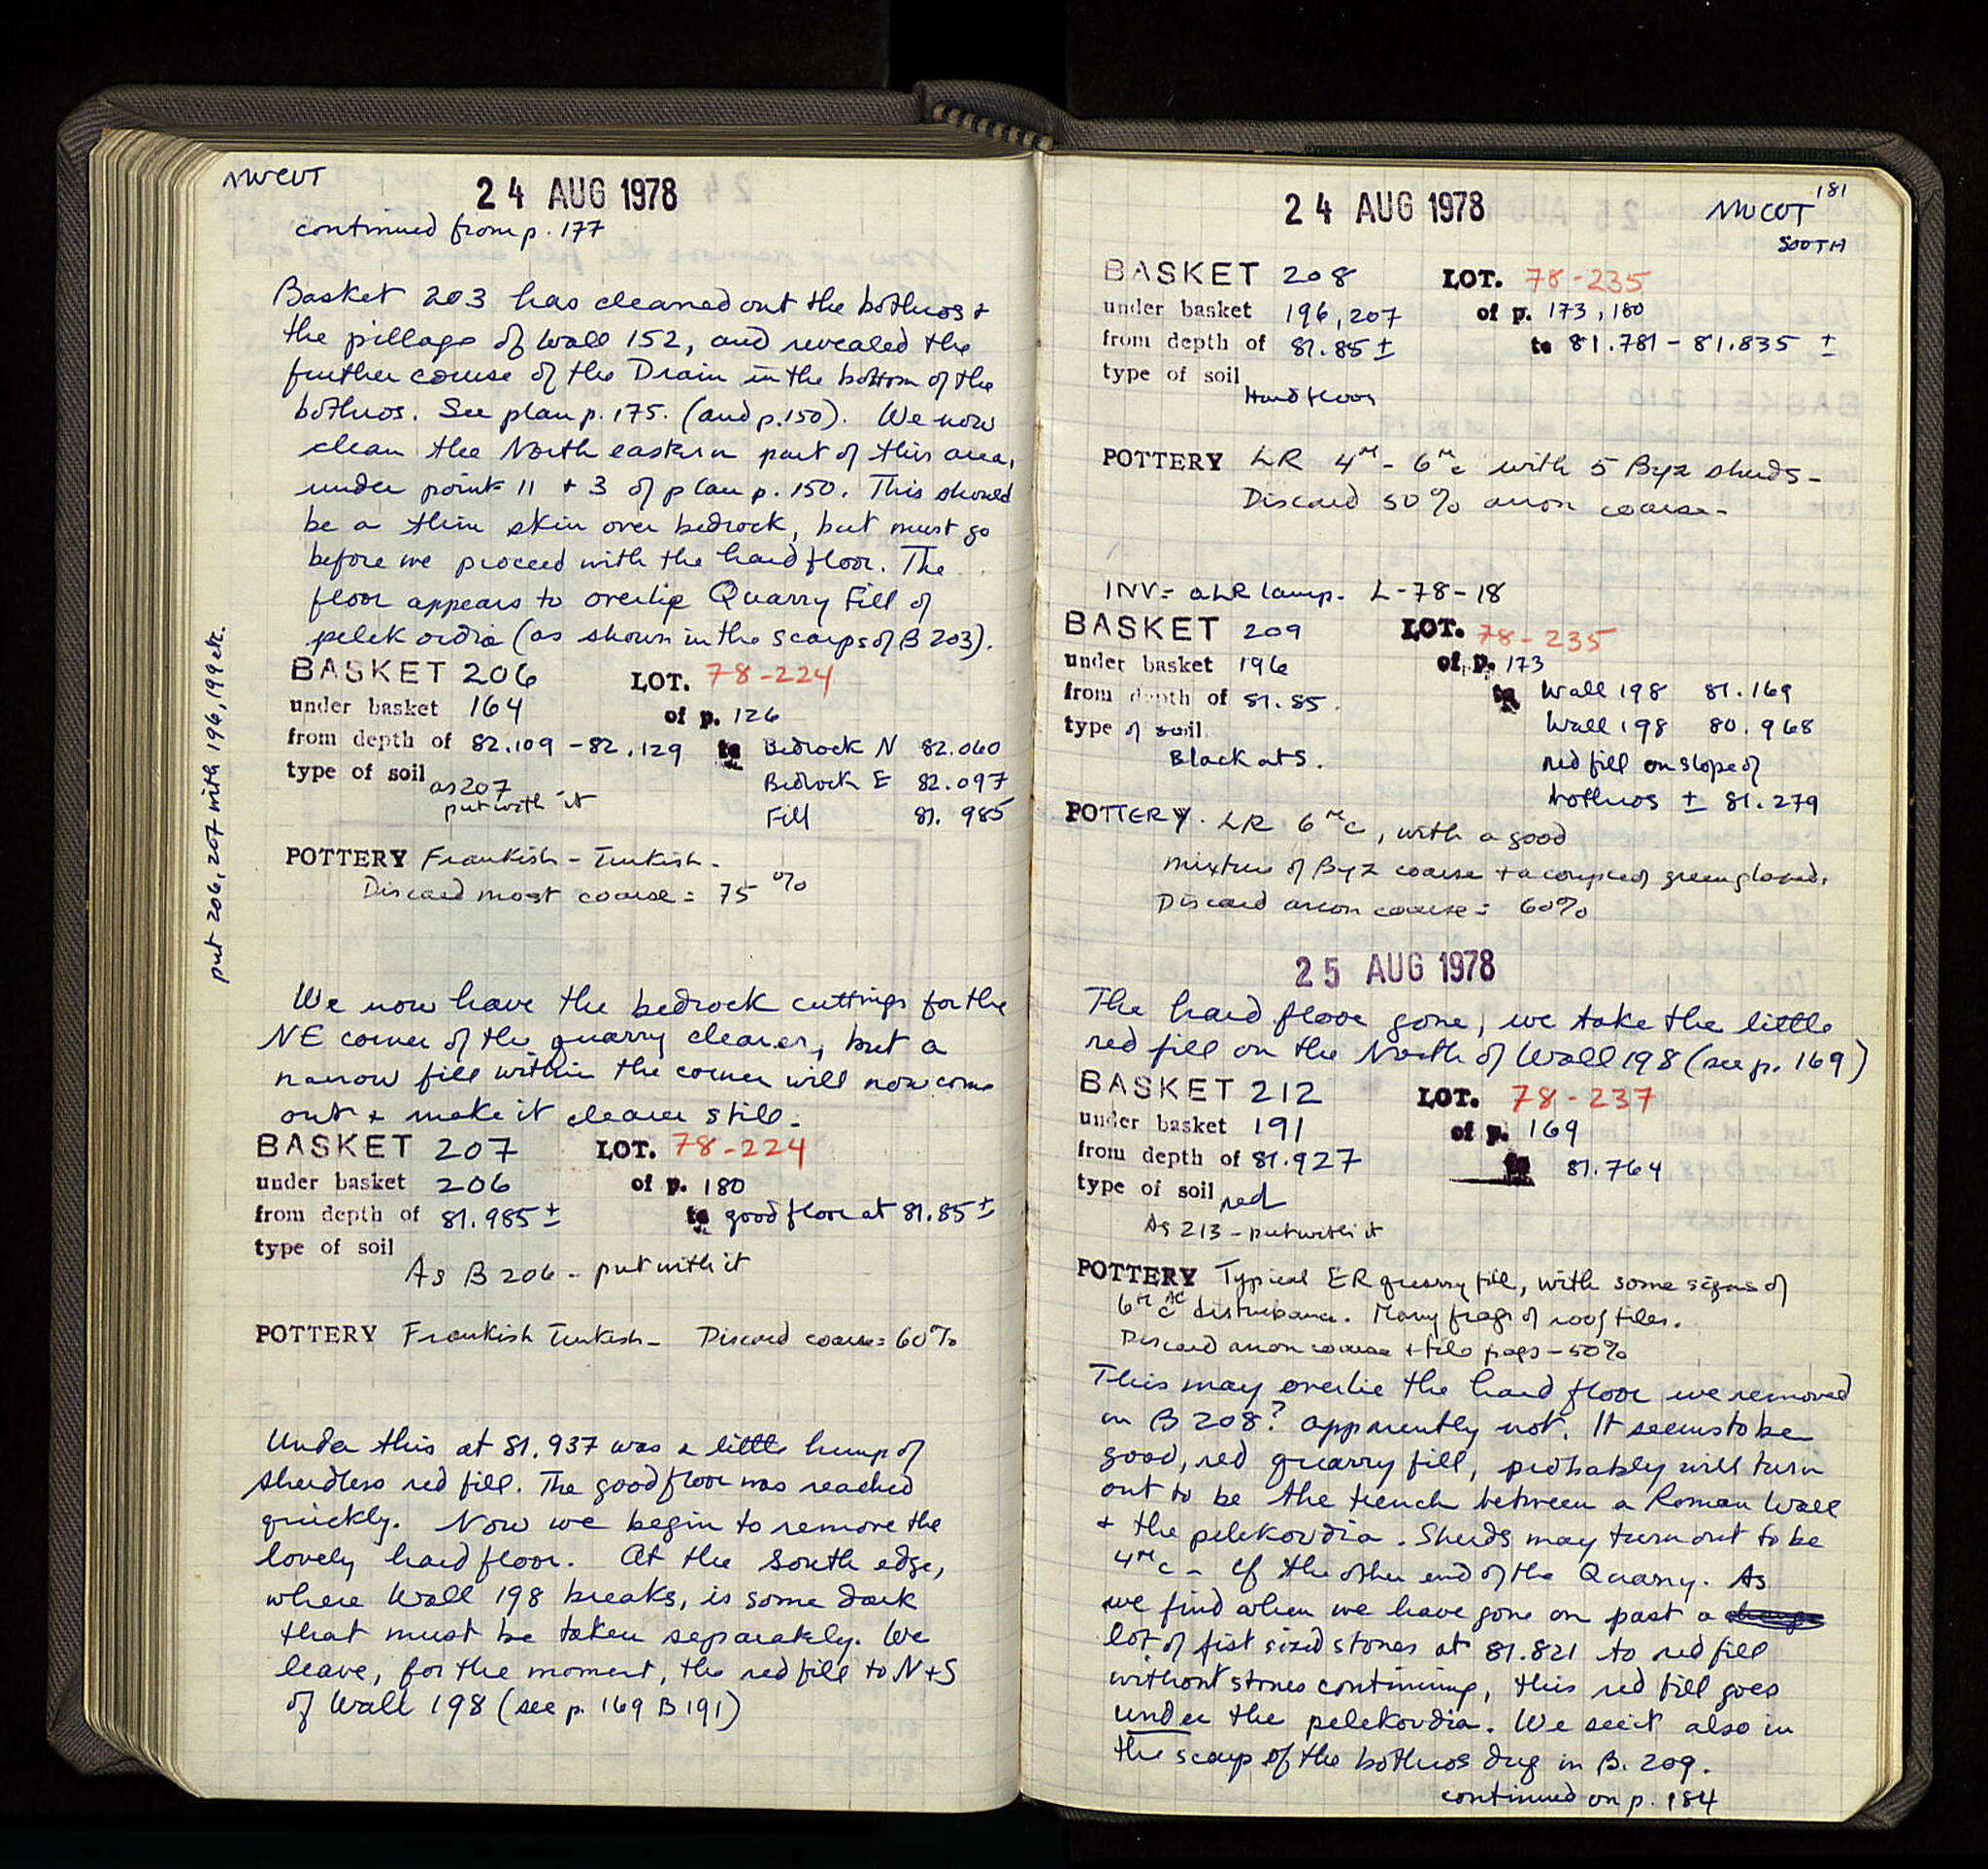 NWCUT
24 AUG 1978
continued from p. 177
Basket 203 has cleaned out the bothros +
the pillage of wall 152, and revealed the
further course of the Drain in the bottom of the
bothros. See plan p. 175. (and p. 150). We now
clean the North eastern part of this area,
under point 11 + 3 of plan p. 150. This should
be a thin skin over bedrock, but must go
before we proceed with the hard floor. The
floor appears to overlie Quarry Fill of
pelekoudia (as shown in the scarps of B 203).
BASKET 206 LOT. 78-224
under basket 164 of p. 126
from depth of 82.109 - 82.129 to Bedrock N 82.060
Bedrock E 82.097
Fill 81.985
type of soil as 207
put with it
POTTERY Frankish - Turkish.
Discard most coarse = 75%
put 206, 207 with 196, 199 etc.
We now have the bedrock cuttings for the
NE corner of the quarry clearer, but a
narrow fill within the corner will now come
out + make it clearer still.
BASKET 207 LOT. 78-224
under basket 206 of p. 180
from depth of 81.985 ± to good floor at 81.85 ±
type of soil
As B 206 - put with it
POTTERY Frankish Turkish - Discard coarse = 60%
Under this at 81.937 was a little hump of
sherdless red fill. The good floor was reached
quickly. Now we begin to remove the
lovely hard floor. At the south edge,
where Wall 198 breaks, is some dark
that must be taken separately. We
leave, for the moment, the red fill to N+S
of Wall 198 (see p. 169 B 191)
181
24 AUG 1978
NWCUT
SOUTH
BASKET 208 LOT. 78-235
under basket 196, 207 of p. 173, 180
from depth of 81.85 ± to 81.781 - 81.835 ±
type of soil
Hard floor
POTTERY LR 4th - 6th c with 5 Byz sherds -
Discard 50% anon coarse -
INV = a LR lamp. L-78-18
BASKET 209 LOT. 78-235
under basket 196 of p. 173
from depth of 81.85. to Wall 198 81.169
Wall 198 80.968
type of soil
Black at S.
red fill on slope of
bothros ± 81.279
POTTERY. LR 6th c, with a good
mixture of Byz coarse + a couple of green glazed.
Discard anon coarse = 60%
25 AUG 1978
The hard floor gone, we take the little
red fill on the North of Wall 198 (see p. 169)
BASKET 212 LOT. 78-237
under basket 191 of p. 169
from depth of 81.927 to 81.764
type of soil red
As 213 - put with it
POTTERY Typical ER quarry fill, with some signs of
6th c AC disturbance. Many frags of roof tiles.
Discard anon coarse + tile frags - 50%
This may overlie the hard floor we removed
in B 208? apparently not. It seems to be
good, red quarry fill, probably will turn
out to be the trench between a Roman Wall
+ the pelekoudia. Sherds may turn out to be
4th c - cf the other end of the Quarry. As
we find when we have gone on past a
lot of fist sized stones at 81.821 to red fill
without stones continuing, this red fill goes
under the pelekoudia. We see it also in
the scarp of the bothros dug in B. 209.
continued on p. 184